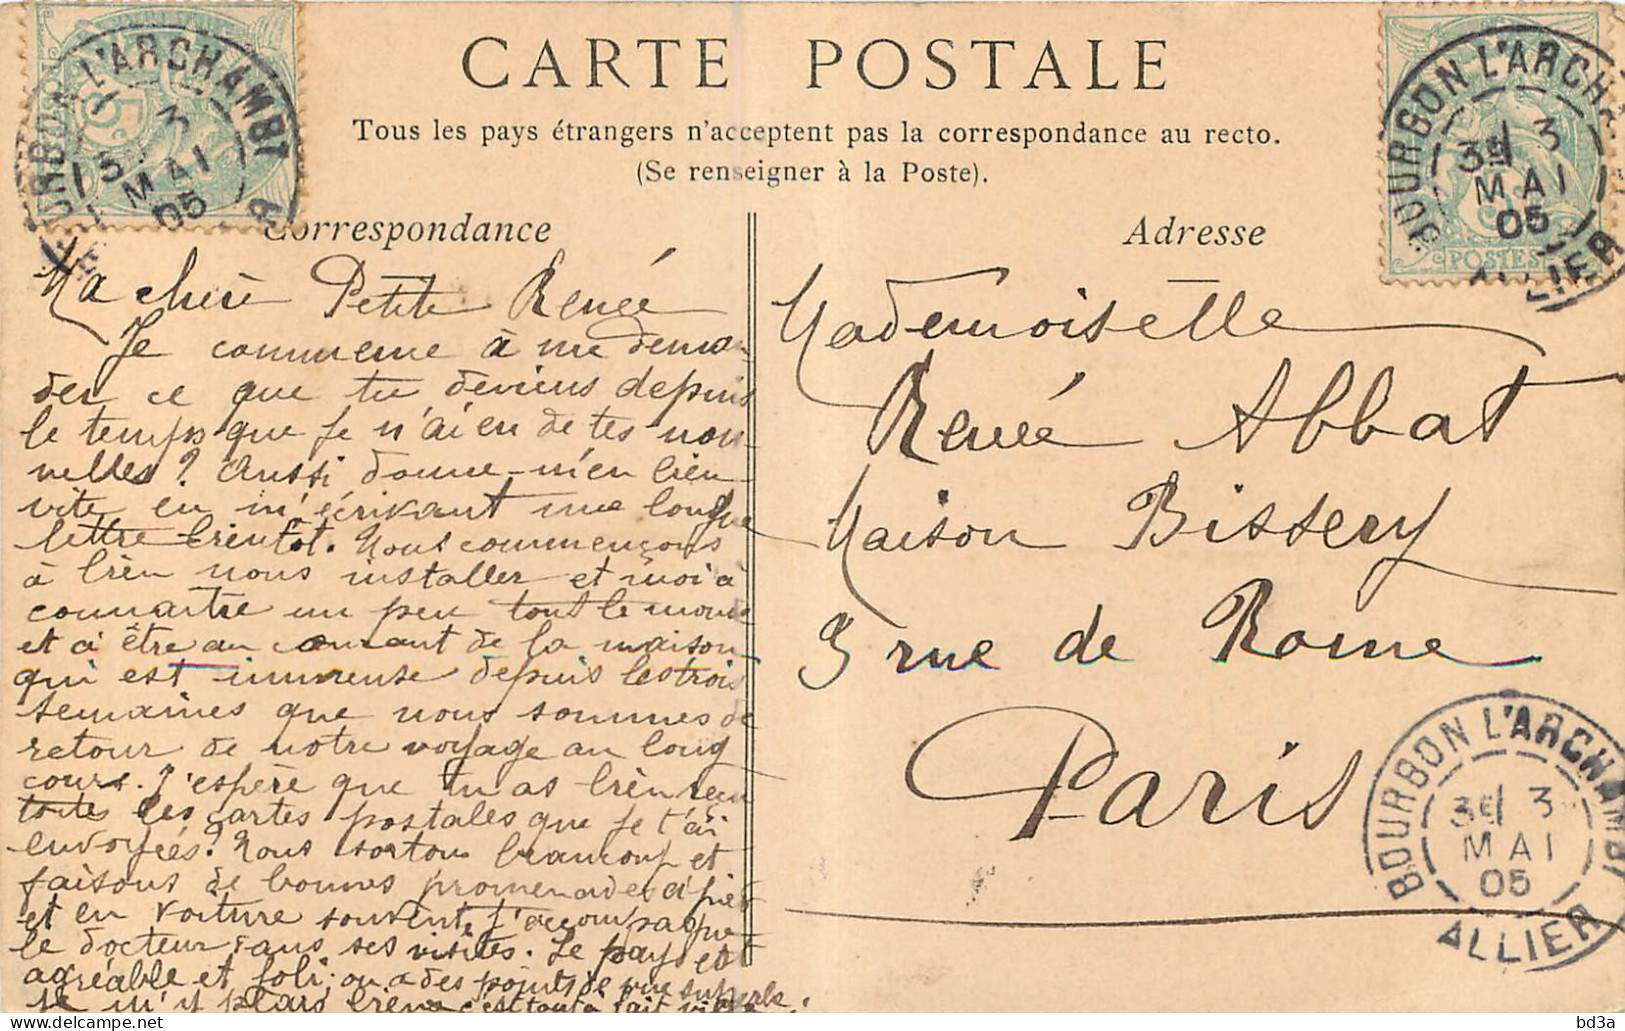 CARTE POSTALE
Tous les pays étrangers n'acceptent pas la correspondance au recto.
(Se renseigner à la Poste).
Correspondance
Ma chère Petite Renée
Je commence à me deman
der ce que tu deviens depuis
le temps que je n'ai eu de tes nou
velles? Aussi donne-m'en bien
vite en m'écrivant une longue
lettre bientôt. Nous commençons
à bien nous installer et moi à
connaître un peu tout le monde
et à être au courant de la maison
qui est immense depuis les trois
semaines que nous sommes de
retour de notre voyage au long
cours. J'espère que tu as bien reçu
toutes les cartes postales que je t'ai
envoyées? Nous sortons beaucoup et
faisons de bonnes promenades à pied
et en voiture souvent, j'accompagne
le docteur dans ses visites. Le pays est
agréable et joli; on a des points de vue superbe.
je m'y plais bien c'est tout à fait
Adresse
Mademoiselle
Renée Abbat
Maison Bissery
3 rue de Rome
Paris
BOURBON L'ARCHAMBT
3
MAI
05
BOURBON L'ARCHA
3E 3
MAI
05
ALLIER
POSTES
BOURBON L'ARCHAMBT
3E 3
MAI
05
ALLIER
bd3a